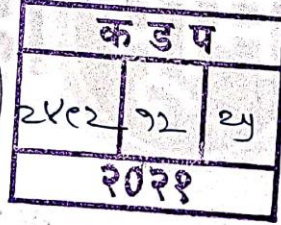 क ड प
२४९२ १२ २५
२०२१